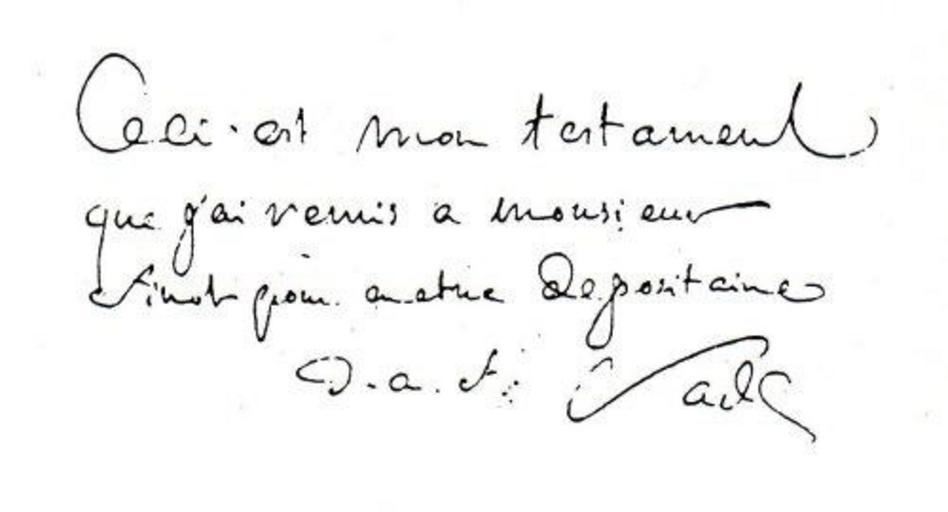 Ceci est mon testament
que j'ai remis a monsieur
finot pour en etre depositaire
D. a. f. Sade